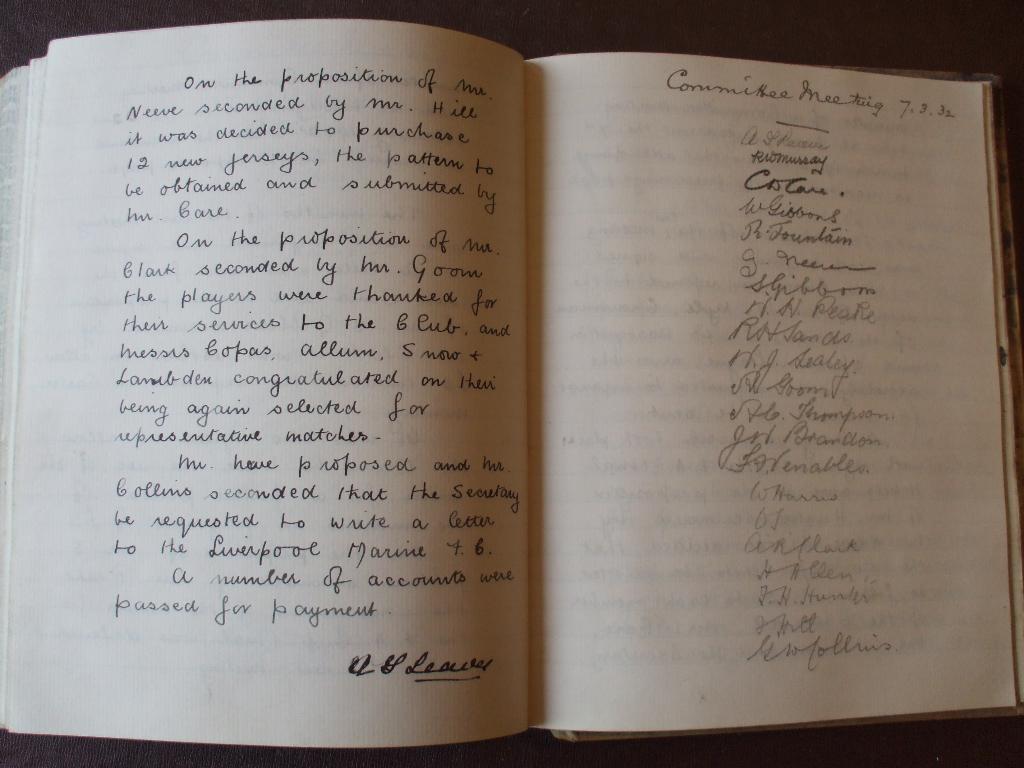 On the proposition of Mr.
Neeve seconded by Mr. Hill
it was decided to purchase
12 new jerseys, the pattern to
be obtained and submitted by
Mr. Care.
On the proposition of Mr.
Clark seconded by Mr. Goom
the players were thanked for
their services to the Club, and
Messrs Copas, Allum, Snow +
Lambden congratulated on their
being again selected for
representative matches -
Mr. heve proposed and Mr.
Collins seconded that the Secretary
be requested to write a letter
to the Liverpool Marine F. C.
A number of accounts were
passed for payment.
A S Leaver
Committee Meeting 7.3.32
A S Leaver
RW Murray
C D Care.
W Gibbons
R. Fountain
G. Neeve
S Gibbons
H. H. Peake
R H Sands
H. J. Sealey.
M. Goom
A.C. Thompson
J.W. Brandon
F J Venables.
W Harris
A R Clark
H Allen
F. H. Hunter
J Hill
G W Collins.